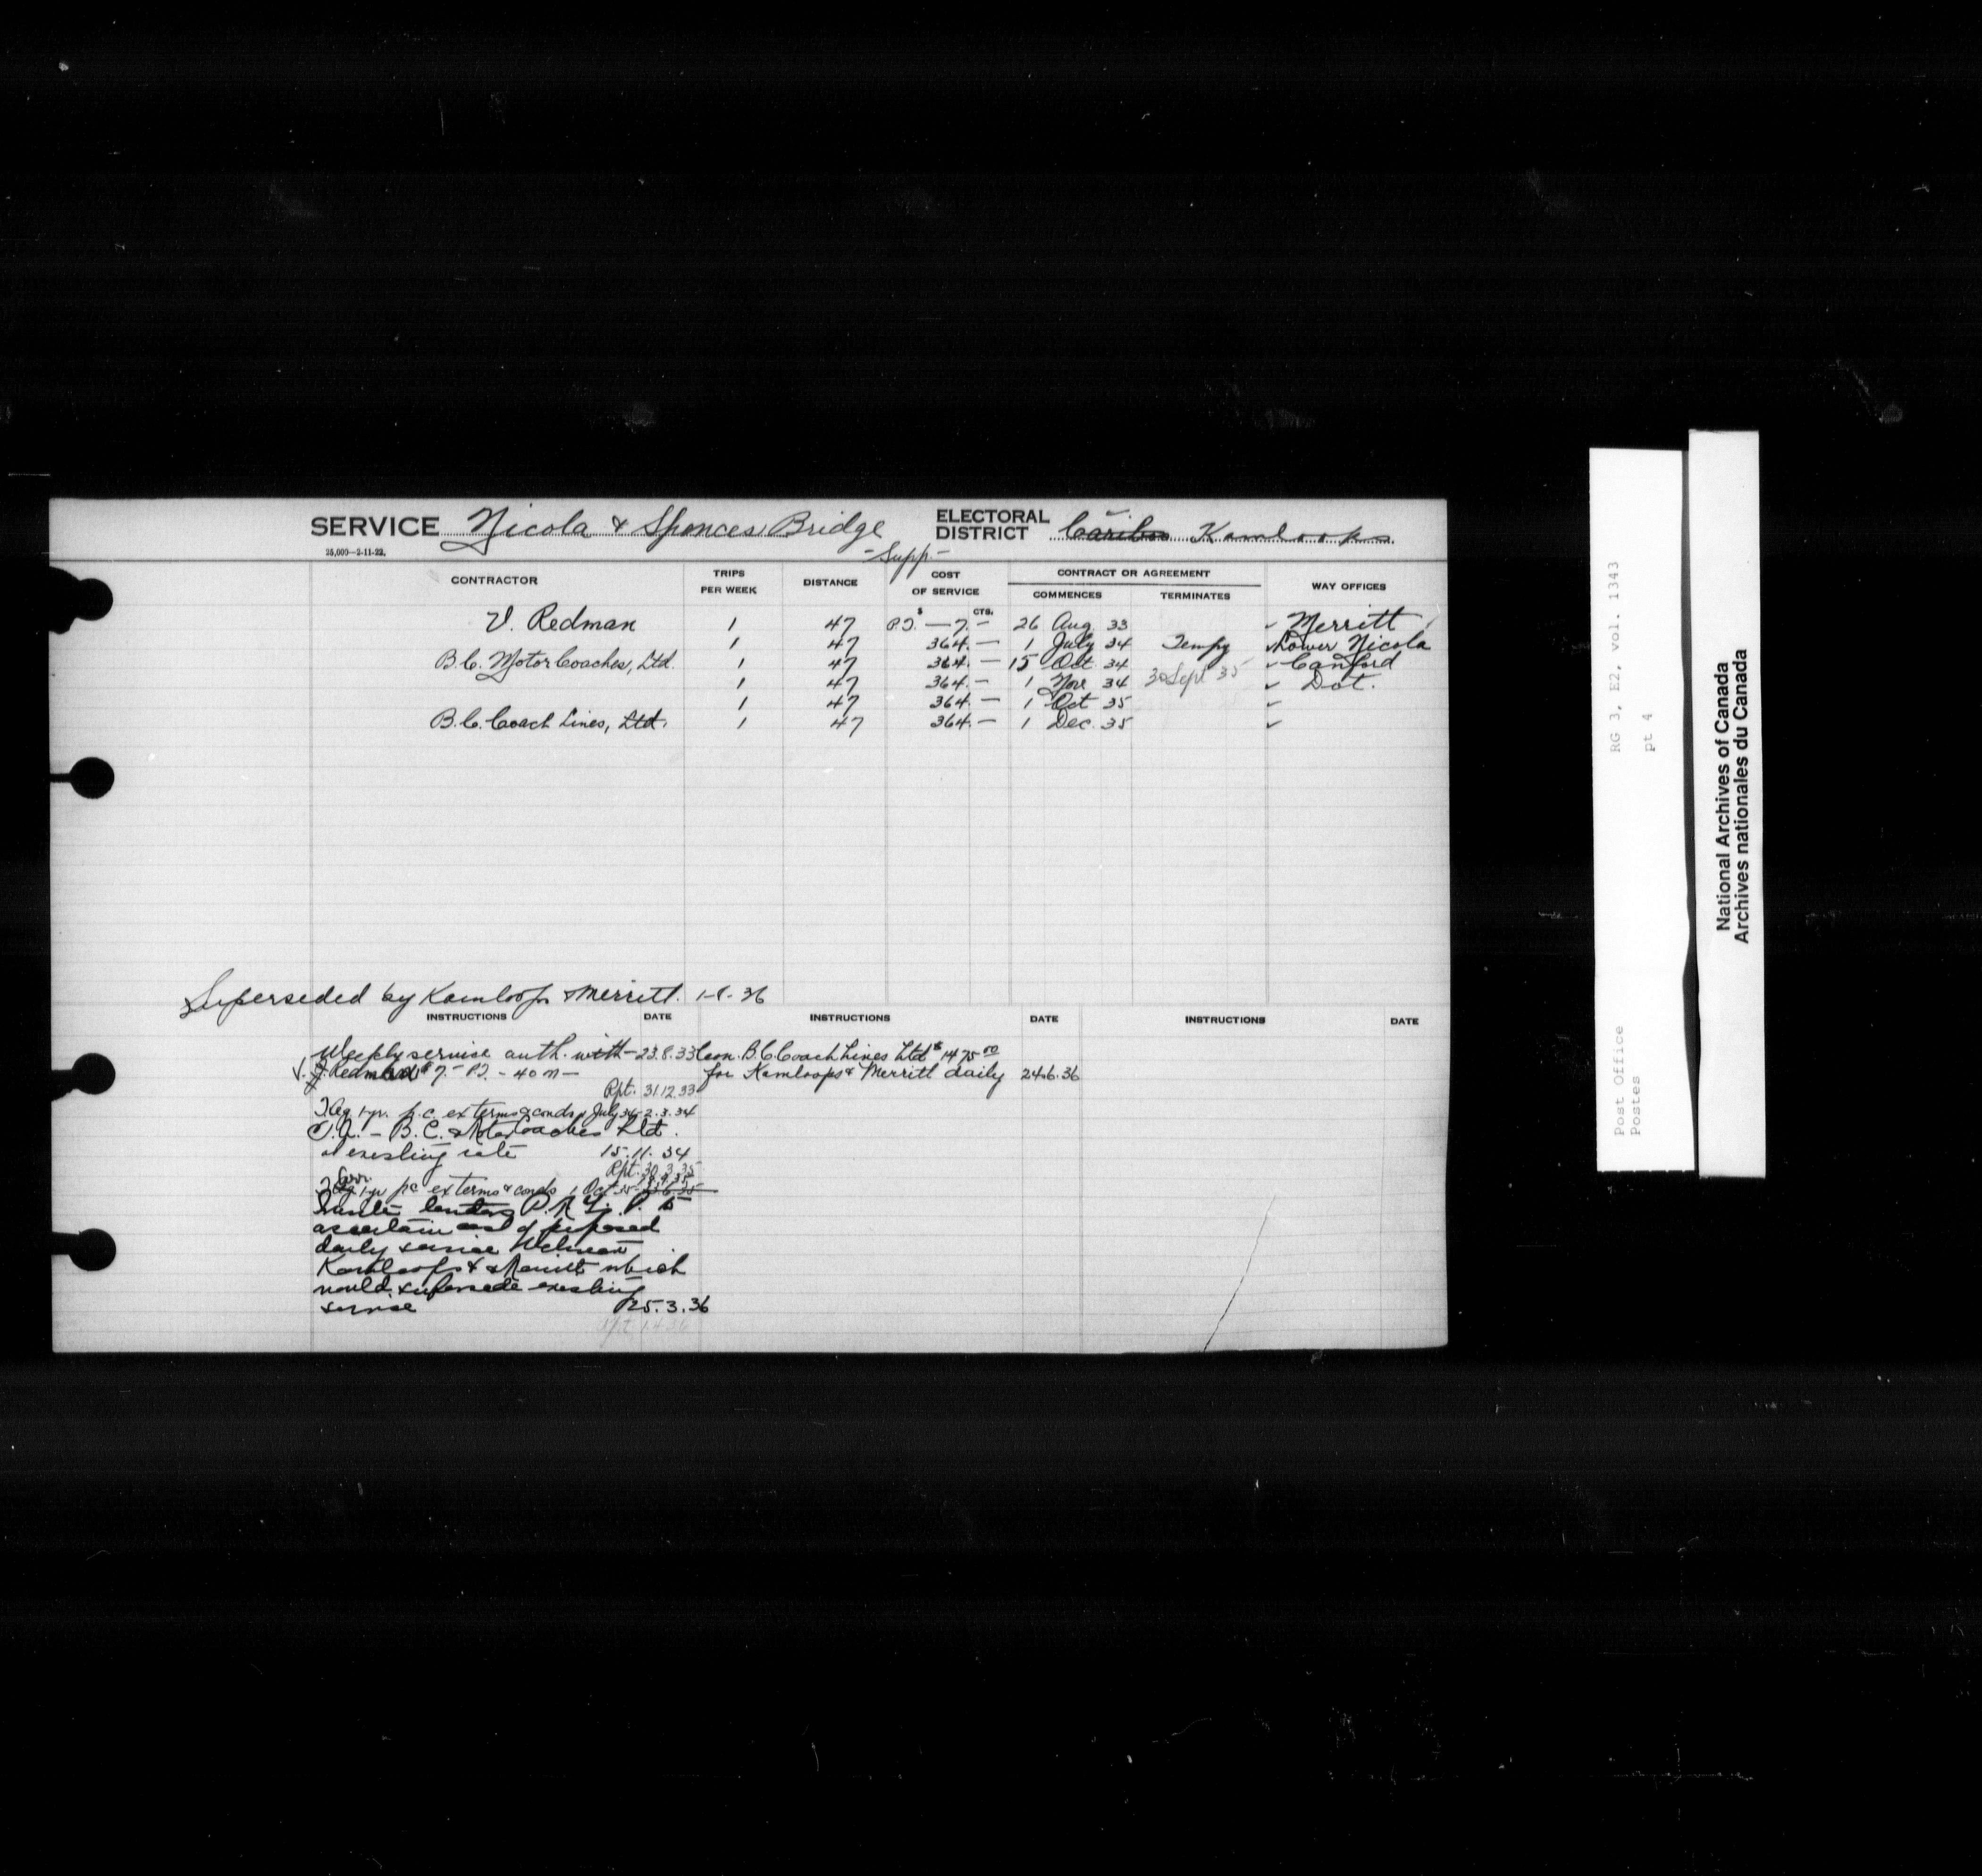 SERVICE Nicola & Spences Bridge
- Supp. -
ELECTORAL DISTRICT Cariboo Kamloops
25,000—2-11-22.
CONTRACTOR TRIPS PER WEEK DISTANCE COST OF SERVICE CONTRACT OR AGREEMENT WAY OFFICES
COMMENCES TERMINATES
$ CTS.
V. Redman 1 47 P.T. — 7. — 26 Aug 33 Merritt
1 47 364. — 1 July 34 Tempy Lower Nicola
B.C. Motor Coaches, Ltd. 1 47 364. — 15 Oct 34 Canford
1 47 364. — 1 Nov 34 30 Sept 35 Dot.
1 47 364. — 1 Oct 35
B.C. Coach Lines, Ltd. 1 47 364. — 1 Dec. 35
Superseded by Kamloops & Merritt. 1-8-36
INSTRUCTIONS DATE INSTRUCTIONS DATE INSTRUCTIONS DATE
Weekly service auth. with - 23.8.33
V. Redman $7.- P.T. - 40 m -
Rpt. 31.12.33
1 yr. p.c. ex terms & conds 1 July 34 - 2.3.34
T.A. - B.C. Motor Coaches Ltd.
at existing rate 15.11.34
Rpt. 30.3.35
1 yr p.c ex terms & conds 1 Oct 35
ascertain cost of proposed
daily service between
Kamloops & Merritt which
would supersede existing
service 25.3.36
Rpt 1.4.36
Con. B.C Coach Lines Ltd $1475.00
for Kamloops & Merritt daily 24.6.36
RG 3, E2, vol. 1343
pt 4
Post Office
Postes
National Archives of Canada
Archives nationales du Canada